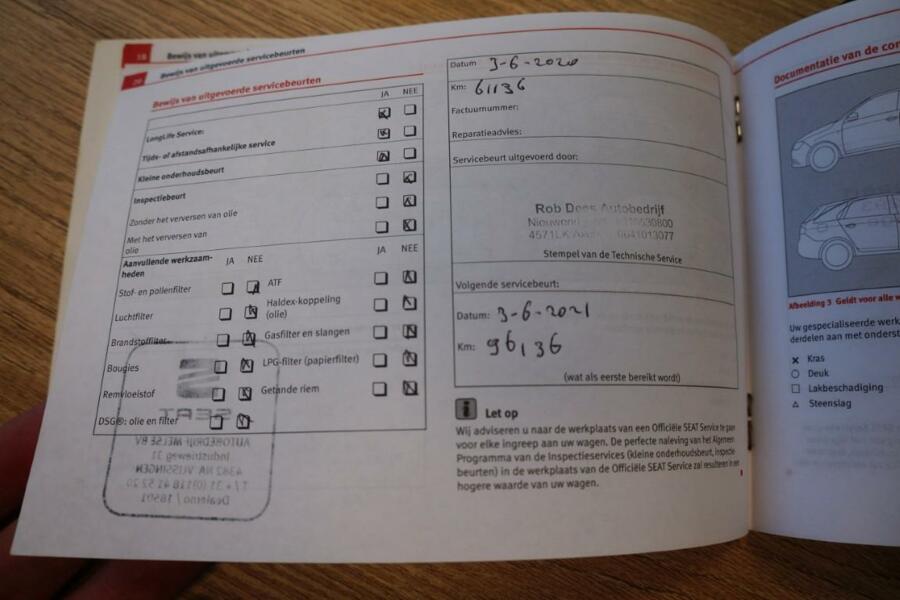 18 Bewijs van uitgevoerde servicebeurten
Bewijs van uitgevoerde servicebeurten
Bewijs van uitgevoerde servicebeurten
JA NEE
LongLife Service:
Tijds- of afstandsafhankelijke service
Kleine onderhoudsbeurt
Inspectiebeurt
Zonder het verversen van olie
Met het verversen van
olie
JA NEE
Aanvullende werkzaam-
heden
JA NEE
Stof- en pollenfilter
Luchtfilter
Brandstoffilter
Bougies
Remvloeistof
DSG®: olie en filter
ATF
Haldex-koppeling
(olie)
Gasfilter en slangen
LPG-filter (papierfilter)
Getande riem
SEAT
AUTOBEDRIJF MELSE BV
Industrieweg 31
4382 NA VLISSINGEN
T / + 31 (0)118 41 52 20
Dealerno / 18501
Datum 3-6-2020
Km: 61136
Factuurnummer:
Reparatieadvies:
Servicebeurt uitgevoerd door:
Rob Dees Autobedrijf
4571LK 0641013077
Stempel van de Technische Service
Volgende servicebeurt:
Datum: 3-6-2021
Km: 96136
(wat als eerste bereikt wordt)
i Let op
Wij adviseren u naar de werkplaats van een Officiële SEAT Service te gaan
voor elke ingreep aan uw wagen. De perfecte naleving van het Algemeen
Programma van de Inspectieservices (kleine onderhoudsbeurt, inspectie
beurten) in de werkplaats van de Officiële SEAT Service zal resulteren in een
hogere waarde van uw wagen.
Documentatie van de con
Afbeelding 3 Geldt voor alle w
Uw gespecialiseerde werk
derdelen aan met onderst
Kras
Deuk
Lakbeschadiging
Steenslag